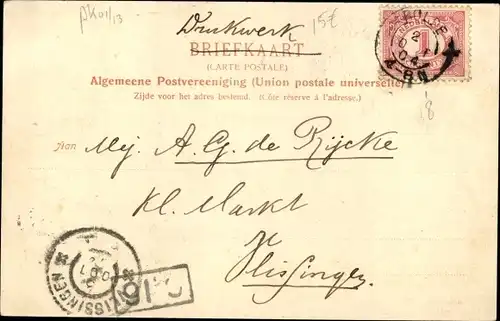 Drukwerk
15€
BRIEFKAART
(CARTE POSTALE)
Algemeene Postvereeniging (Union postale universelle)
Zijde voor het adres bestemd. (Côté réservé à l'adresse.)
Aan
Mej. A. G. de Rijcke
Kl. Markt
Vlissingen
VLISSINGEN